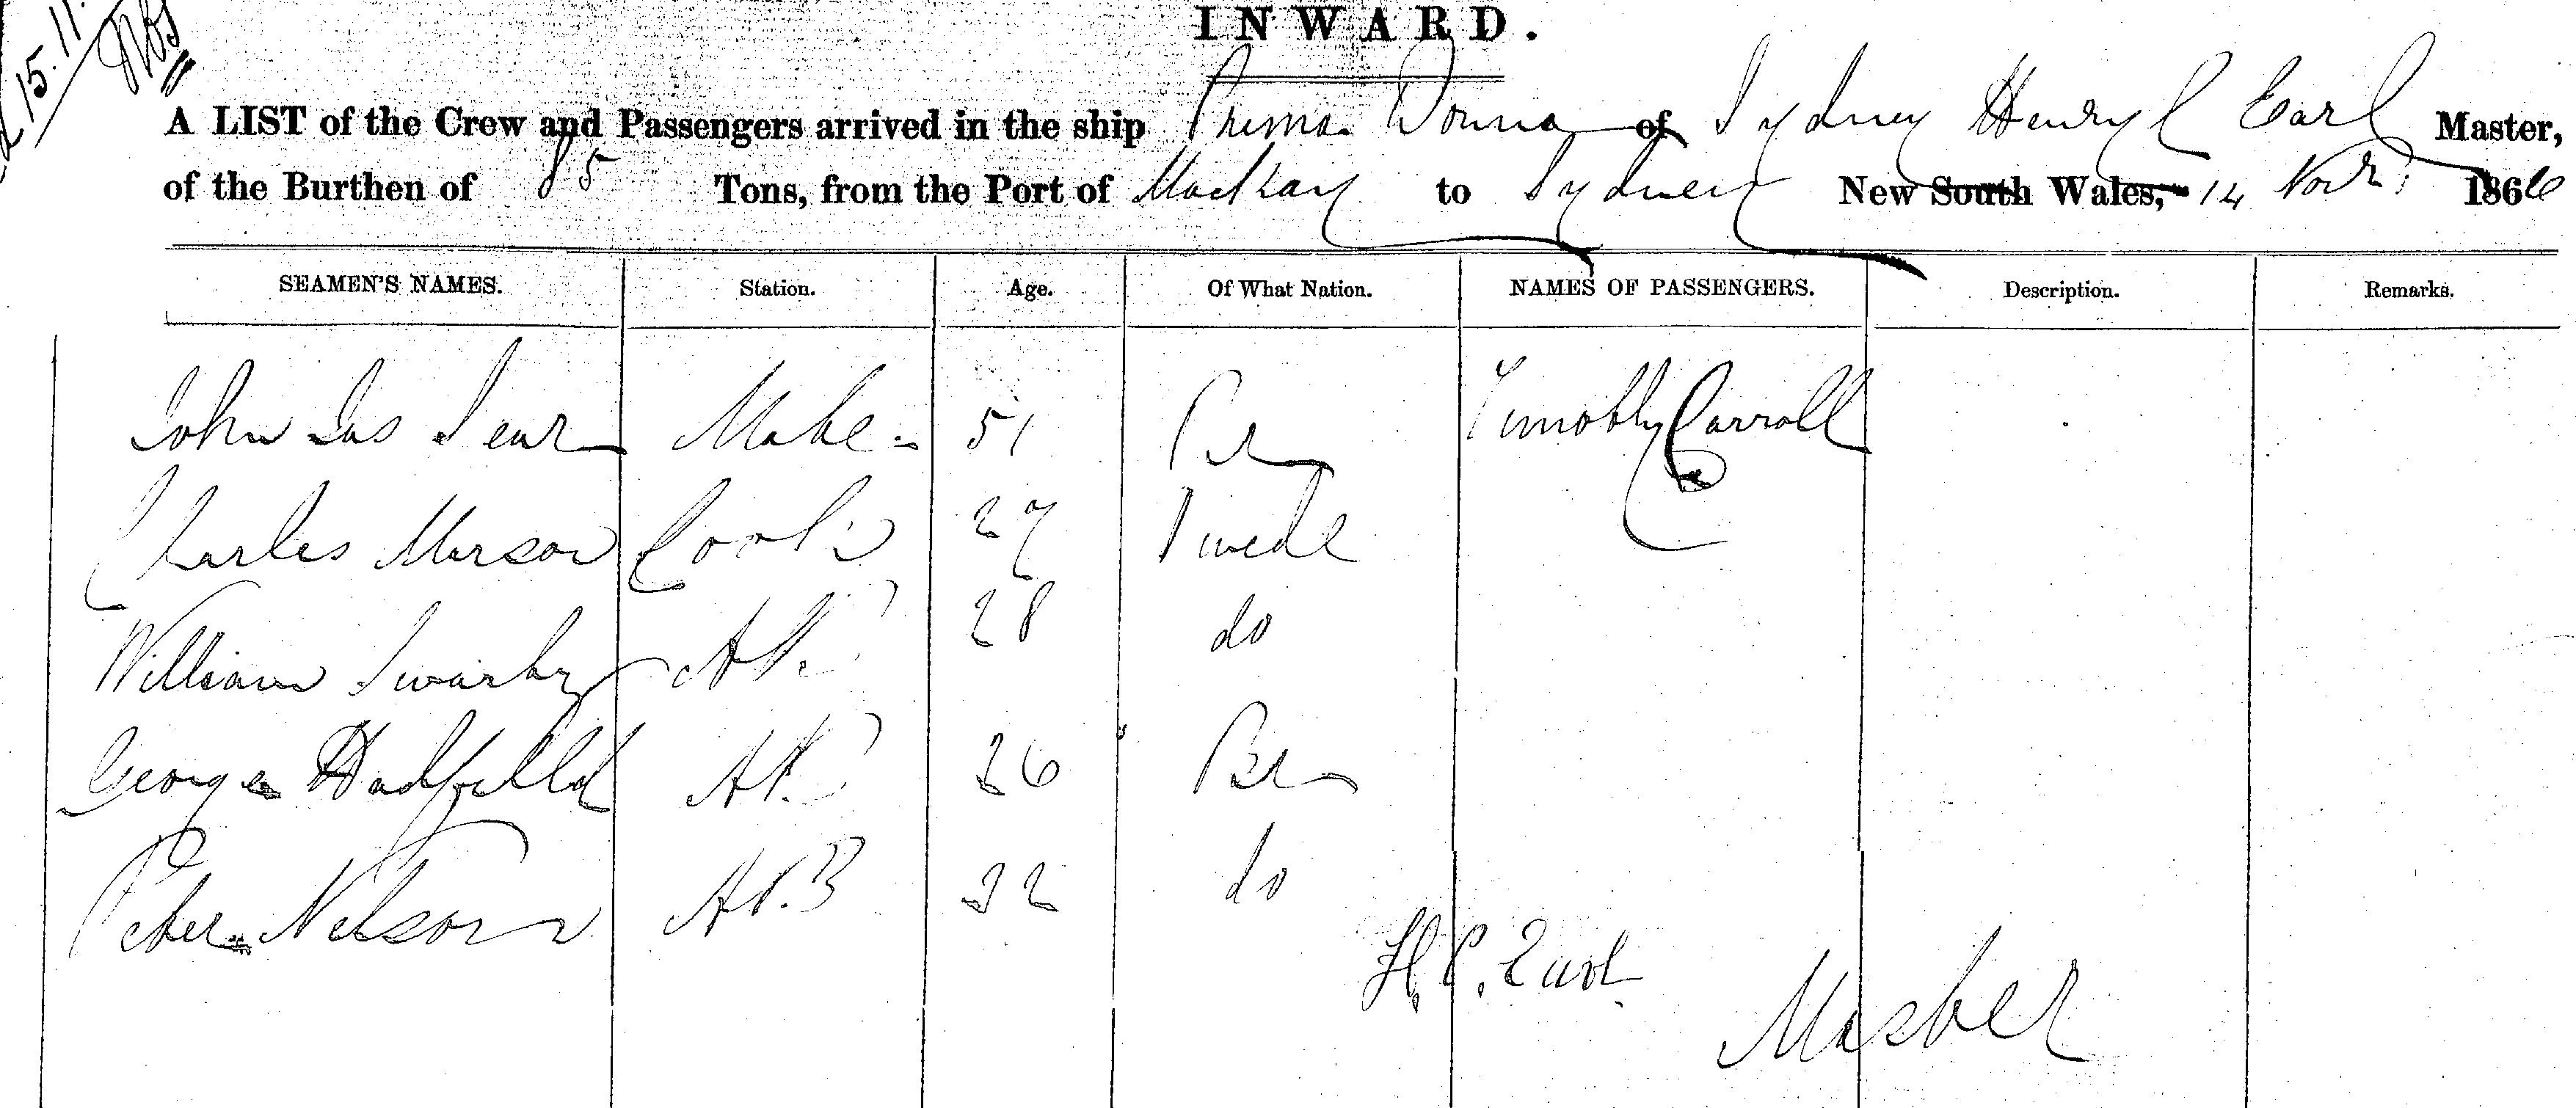 15.11.
INWARD.
A LIST of the Crew and Passengers arrived in the ship Prima Donna of Sydney Henry C Earl Master,
of the Burthen of 85 Tons, from the Port of Mackay to Sydney New South Wales, 14 Novr: 1866
SEAMEN'S NAMES. Station. Age. Of What Nation. NAMES OF PASSENGERS. Description. Remarks.
John Jas Mate 51 Br Timothy Carroll
Charles Cook 27 Swede
William Swarby AB 28 do
George Hadfield AB 26 Br
Peter Nelson AB 32 do
H. C. Earl
Master